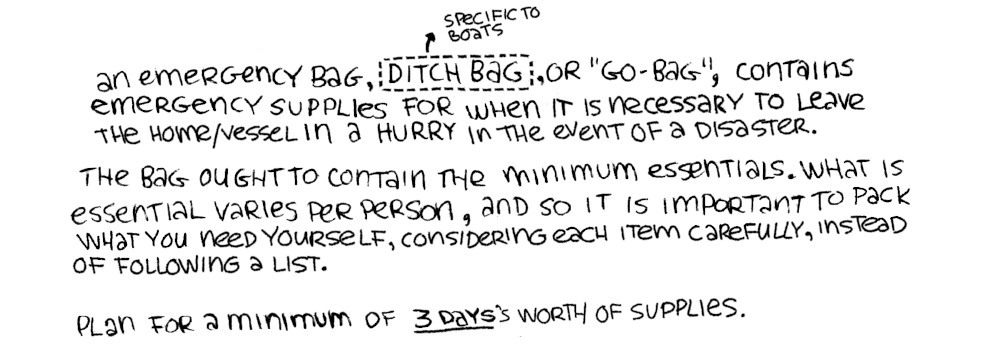 SPECIFIC TO
BOATS
an emergency Bag, DITCH BAG, OR "GO-BAG", contains
emergency supplies for when it is necessary to leave
the home/vessel in a HURRY in the event of a disaster.
The Bag ought to contain the minimum essentials. What is
essential varies per person, and so it is important to pack
what you need yourself, considering each item carefully, instead
of following a list.
Plan for a minimum of 3 DAYS's worth of supplies.